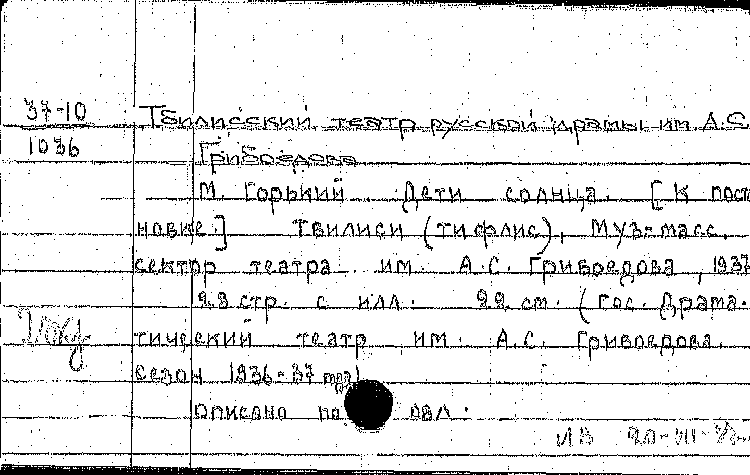 37-10
1036
Тбилисский театр русской драмы им А.С.
Грибоедова
М. Горький Дети солнца. [К поста
новке.] Тбилиси (Тифлис), Муз-масс.
сектор театра им. А.С. Грибоедова, 1937
28 стр. с илл. 22 см. (Гос. Драма-
тический театр им. А.С. Грибоедова.
Сезон 1936-37 г.)
Описано по обл.